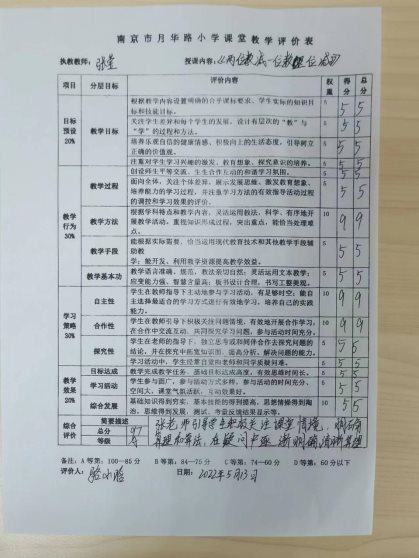 南京市月华路小学课堂教学评价表
执教教师：张莹 授课内容：《两位数减一位数退位减》
项目 分层目标 评价内容 权重 得分 总分
目标预设20% 教学目标 根据教学内容设置明确的合乎课标要求、学生实际的知识目标和技能目标。 5 5 5
关注学生差异和每个学生的发展，设计有层次的“教”与“学”的过程和方法。 5 5 5
培养乐观自信的健康情感，积极向上的生活态度，引导树立正确的价值观。 5 5 5
注重对学生学习兴趣的激发、教育想象、探究意识的培养。 5 5 5
教学行为30% 教学过程 创设师生平等交流、生生合作互动的和谐学习氛围。 5 5 5
面向全体，关注个体差异，展示发展思维、激发教育想象、培养能力的学习过程，并注重学习方法的有效指导活动过程的调控和学习效果的评价。 5 5 5
教学方法 根据学科特点和教学内容，灵活运用教法，科学、有序地开展教学活动，重视知识形成过程，突出重点，能恰当处理难点。 10 9 9
教学手段 能根据实际需要，恰当运用现代教育技术和其他教学手段辅助教学；能开发、利用教学资源提高教学效益。 5 5 5
教学基本功 教学语言准确、规范，教法亲切自然；灵活运用文本教学；应变能力强、智慧含量高；板书设计合理，书写工整美观。 5 5 5
学习策略30% 自主性 学生在教师指导下主动地参与学习活动，有足够时空；能自主选择最适合的学习方式进行有效地学习。培养自己的实践能力。 10 9 9
合作性 学生在教师引导下积极关注问题情境，有效地开展合作学习，在合作中交流互动、共同探究学习问题，参与活动时间充分。 10 9 9
探究性 学生在老师的指导下，独立思考或和同伴合作去探究问题的结论，并在探究中拓宽知识面、提高分析、解决问题的能力。 5 5 5
学习活动中，学生经常自觉向老师和同学质疑问难。 5 5 5
教学效果20% 目标达成 完成教学工作任务，基础目标达成高度，有效思维时间长。 5 5 5
学习活动 学生参与面广，参与活动方式多样，参与活动的时间充分、空间广大，课堂气氛活跃，互动效果好。 5 5 5
综合发展 基础知识得到夯实，基本技能的得到提高，思想情操得到陶冶，思维得到发展，测试、考查反馈结果显示等。 10 5 5
综合评价 简要描述
总分 97
等级 A
张老师引导学生积极关注课堂情境，明确
算理和算法，在疑问
备注：A 等第：100—85分 B 等第：84—75分 C 等第：74—60分 D 等第：60分以下
评价人： 日期：2022年5月13日